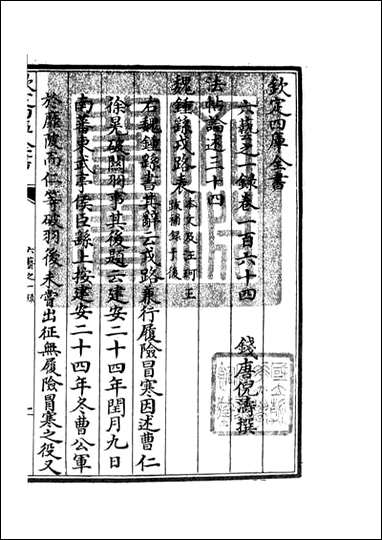 欽定四庫全書
六藝之一錄卷一百六十四
錢唐倪濤撰
法帖論述三十四
魏鍾繇戎路表本文及汪珂王
跋補録于後
右魏鍾繇書其辭云戎路兼行履險冒寒因述曹仁
徐晃破關羽事其後題云建安二十四年閏月九日
南蕃東武亭侯臣繇上按建安二十四年冬曹公軍
於摩陂而仁等破羽後未嘗出征無履險冒寒之役又
六藝之一錄